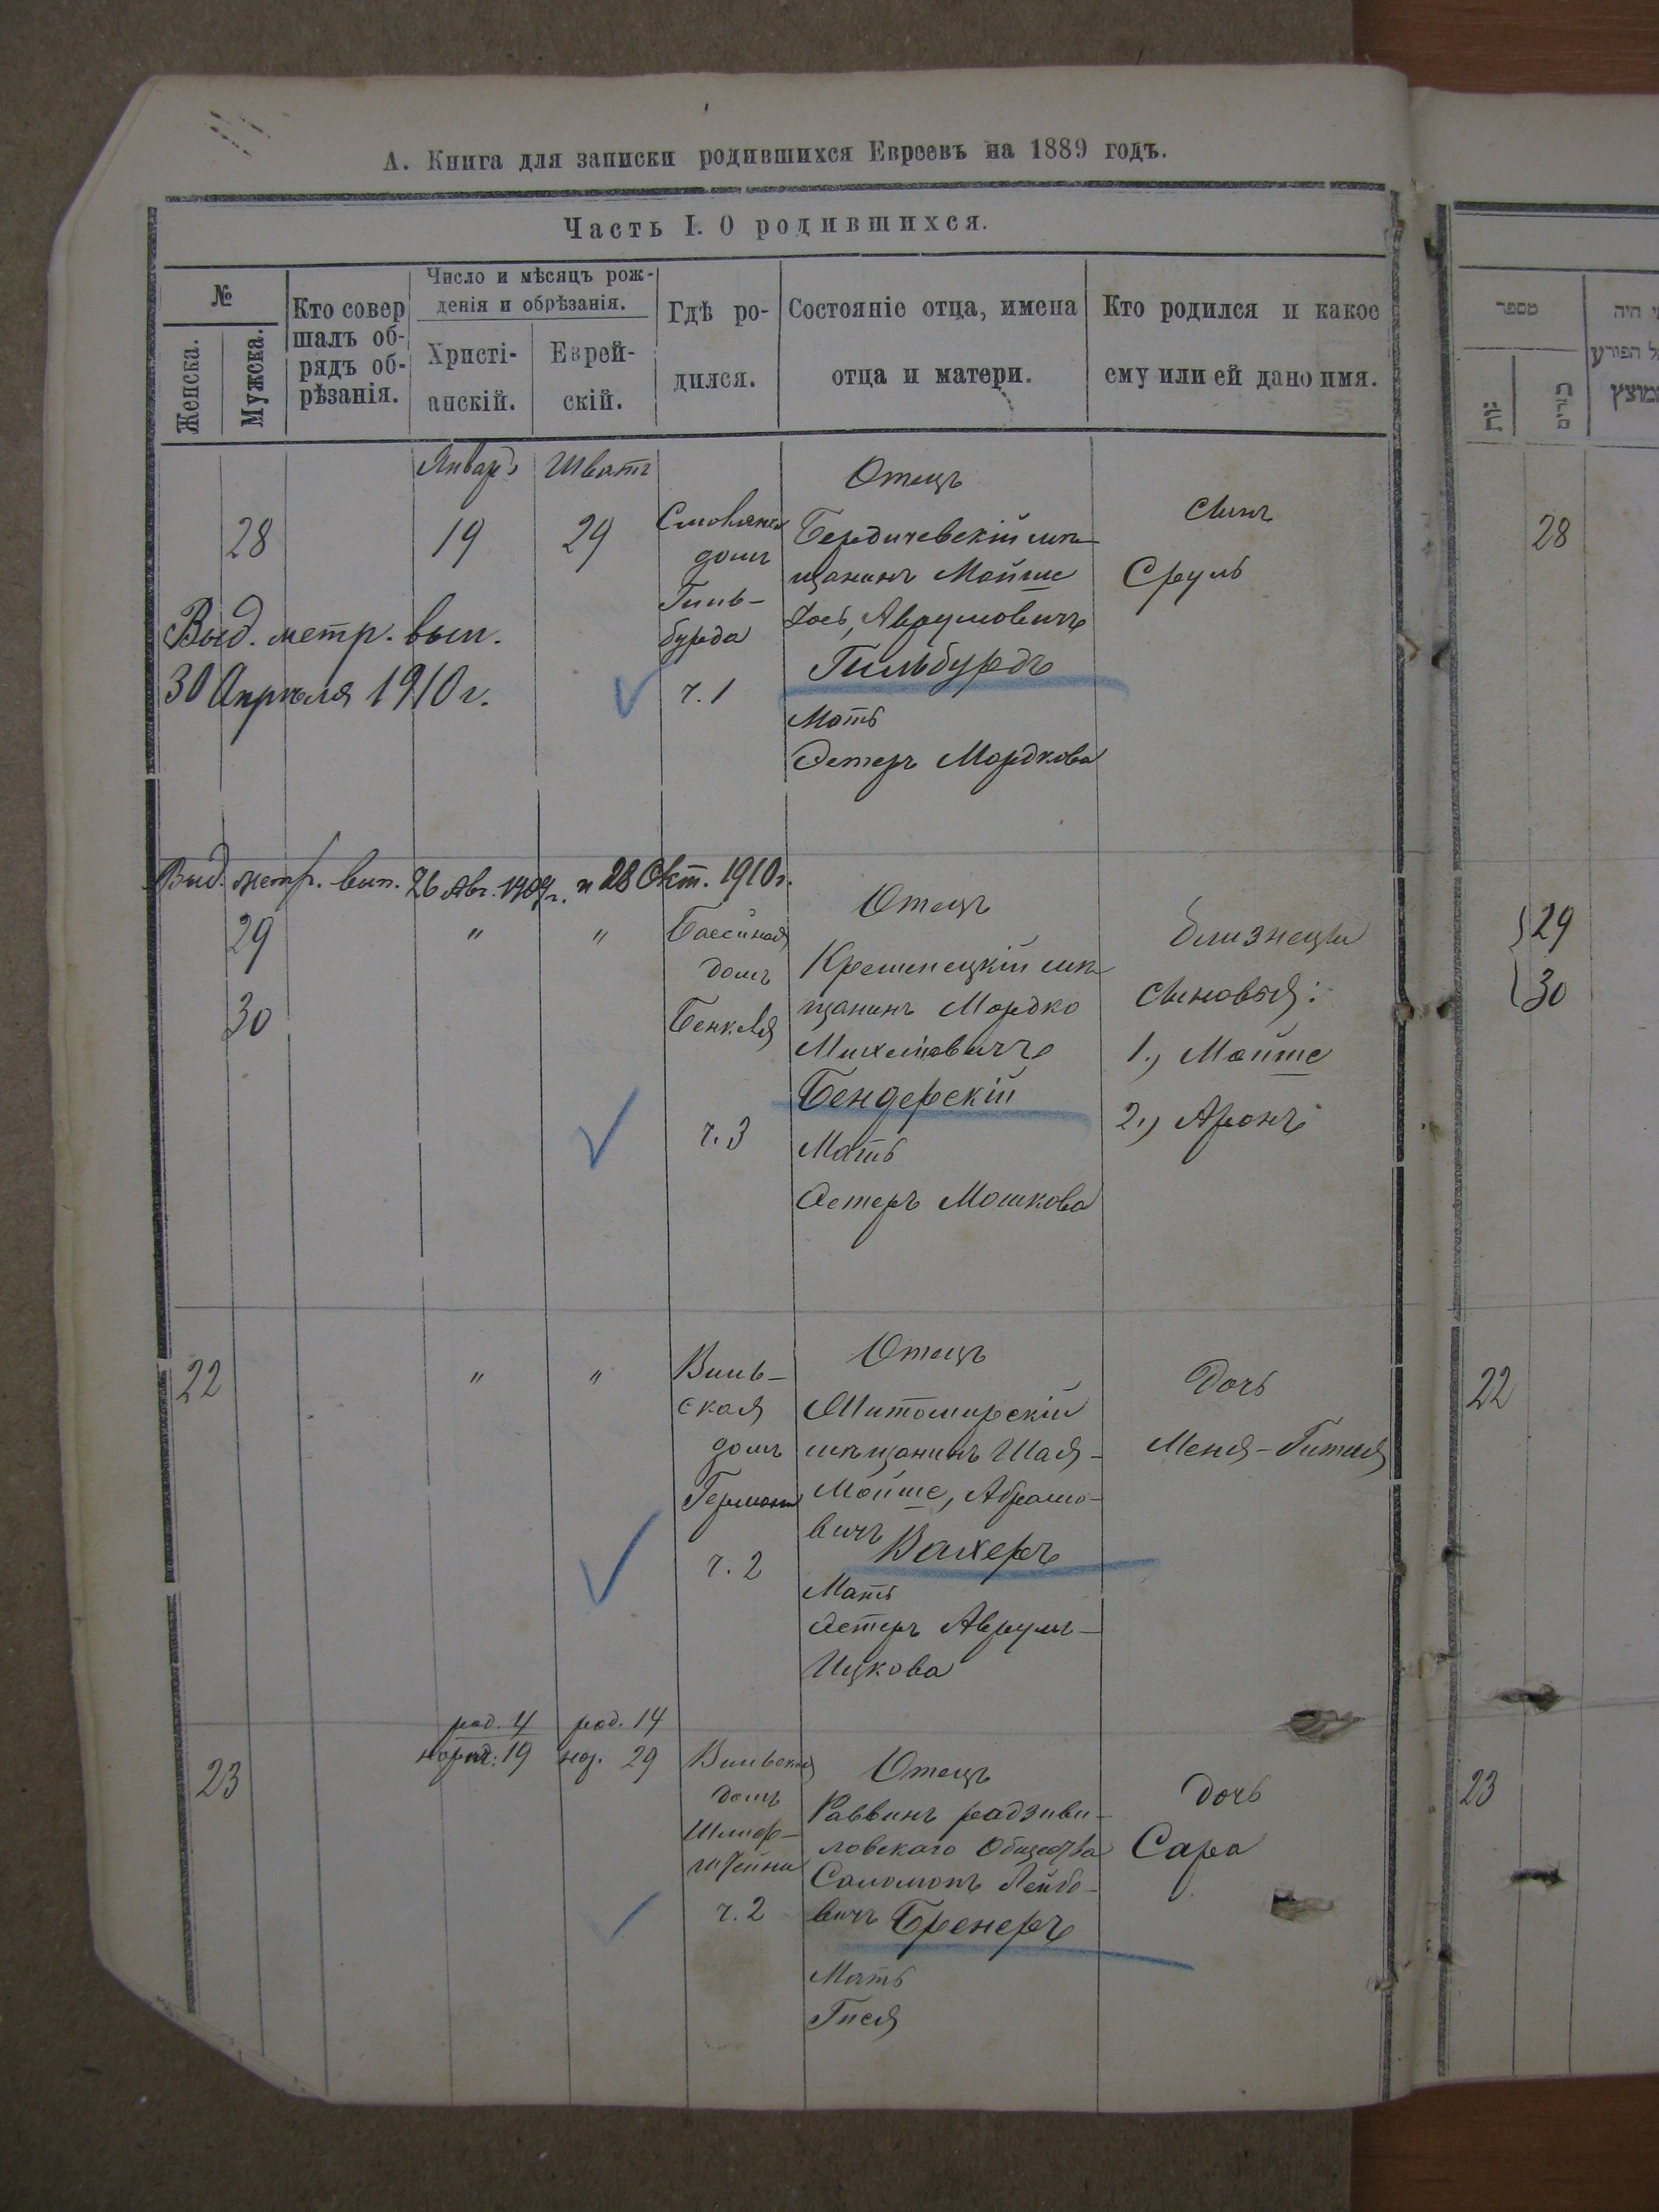 А. Книга для записки родившихся Евреевъ на 1889 годъ.
Часть I. О родившихся.
№
Женска.
Мужска.
Кто совер
шалъ об-
рядъ об-
рѣзанія.
Число и мѣсяцъ рож-
денія и обрѣзанія.
Христі-
анскій.
Еврей-
скій.
Гдѣ ро-
дился.
Состояніе отца, имена
отца и матери.
Кто родился и какое
ему или ей дано имя.
Январь
Шватъ
28
19
29
домъ
Гиль-
бурда
ч. 1
Отецъ
Бердичевскій мѣ-
щанинъ Мойше
Іосъ, Аврумовичъ
Гильбурдъ
Мать
Эстеръ Мордкова
Сынъ
Сруль
Выд. метр. вып.
30 Апрѣля 1910 г.
Выд. метр. вып. 26 Авг. 1909 г. и 28 Окт. 1910 г.
29
30
"
"
Бассейная
домъ
ч. 3
Отецъ
Кременецкій мѣ-
щанинъ Мордко
Михелевичъ
Бендерскій
Мать
Эстеръ Мошкова
близнецы
сыновья:
1., Мойше
2., Аронъ
22
"
"
Виль-
ская
домъ
ч. 2
Отецъ
Житомирскій
мѣщанинъ Шая-
Мойше, Абрамо-
вичъ Вахеръ
Мать
Эстеръ Аврумъ-
Ицкова
Дочь
Меня-Гитля
23
род. 4
нареч. 19
род. 14
нар. 29
Вильская
домъ
ч. 2
Отецъ
Раввинъ радзиви-
ловскаго Общества
Соломонъ Лейбо-
вичъ Бренеръ
Мать
Гися
дочь
Сара
מספר
28
29
30
22
23